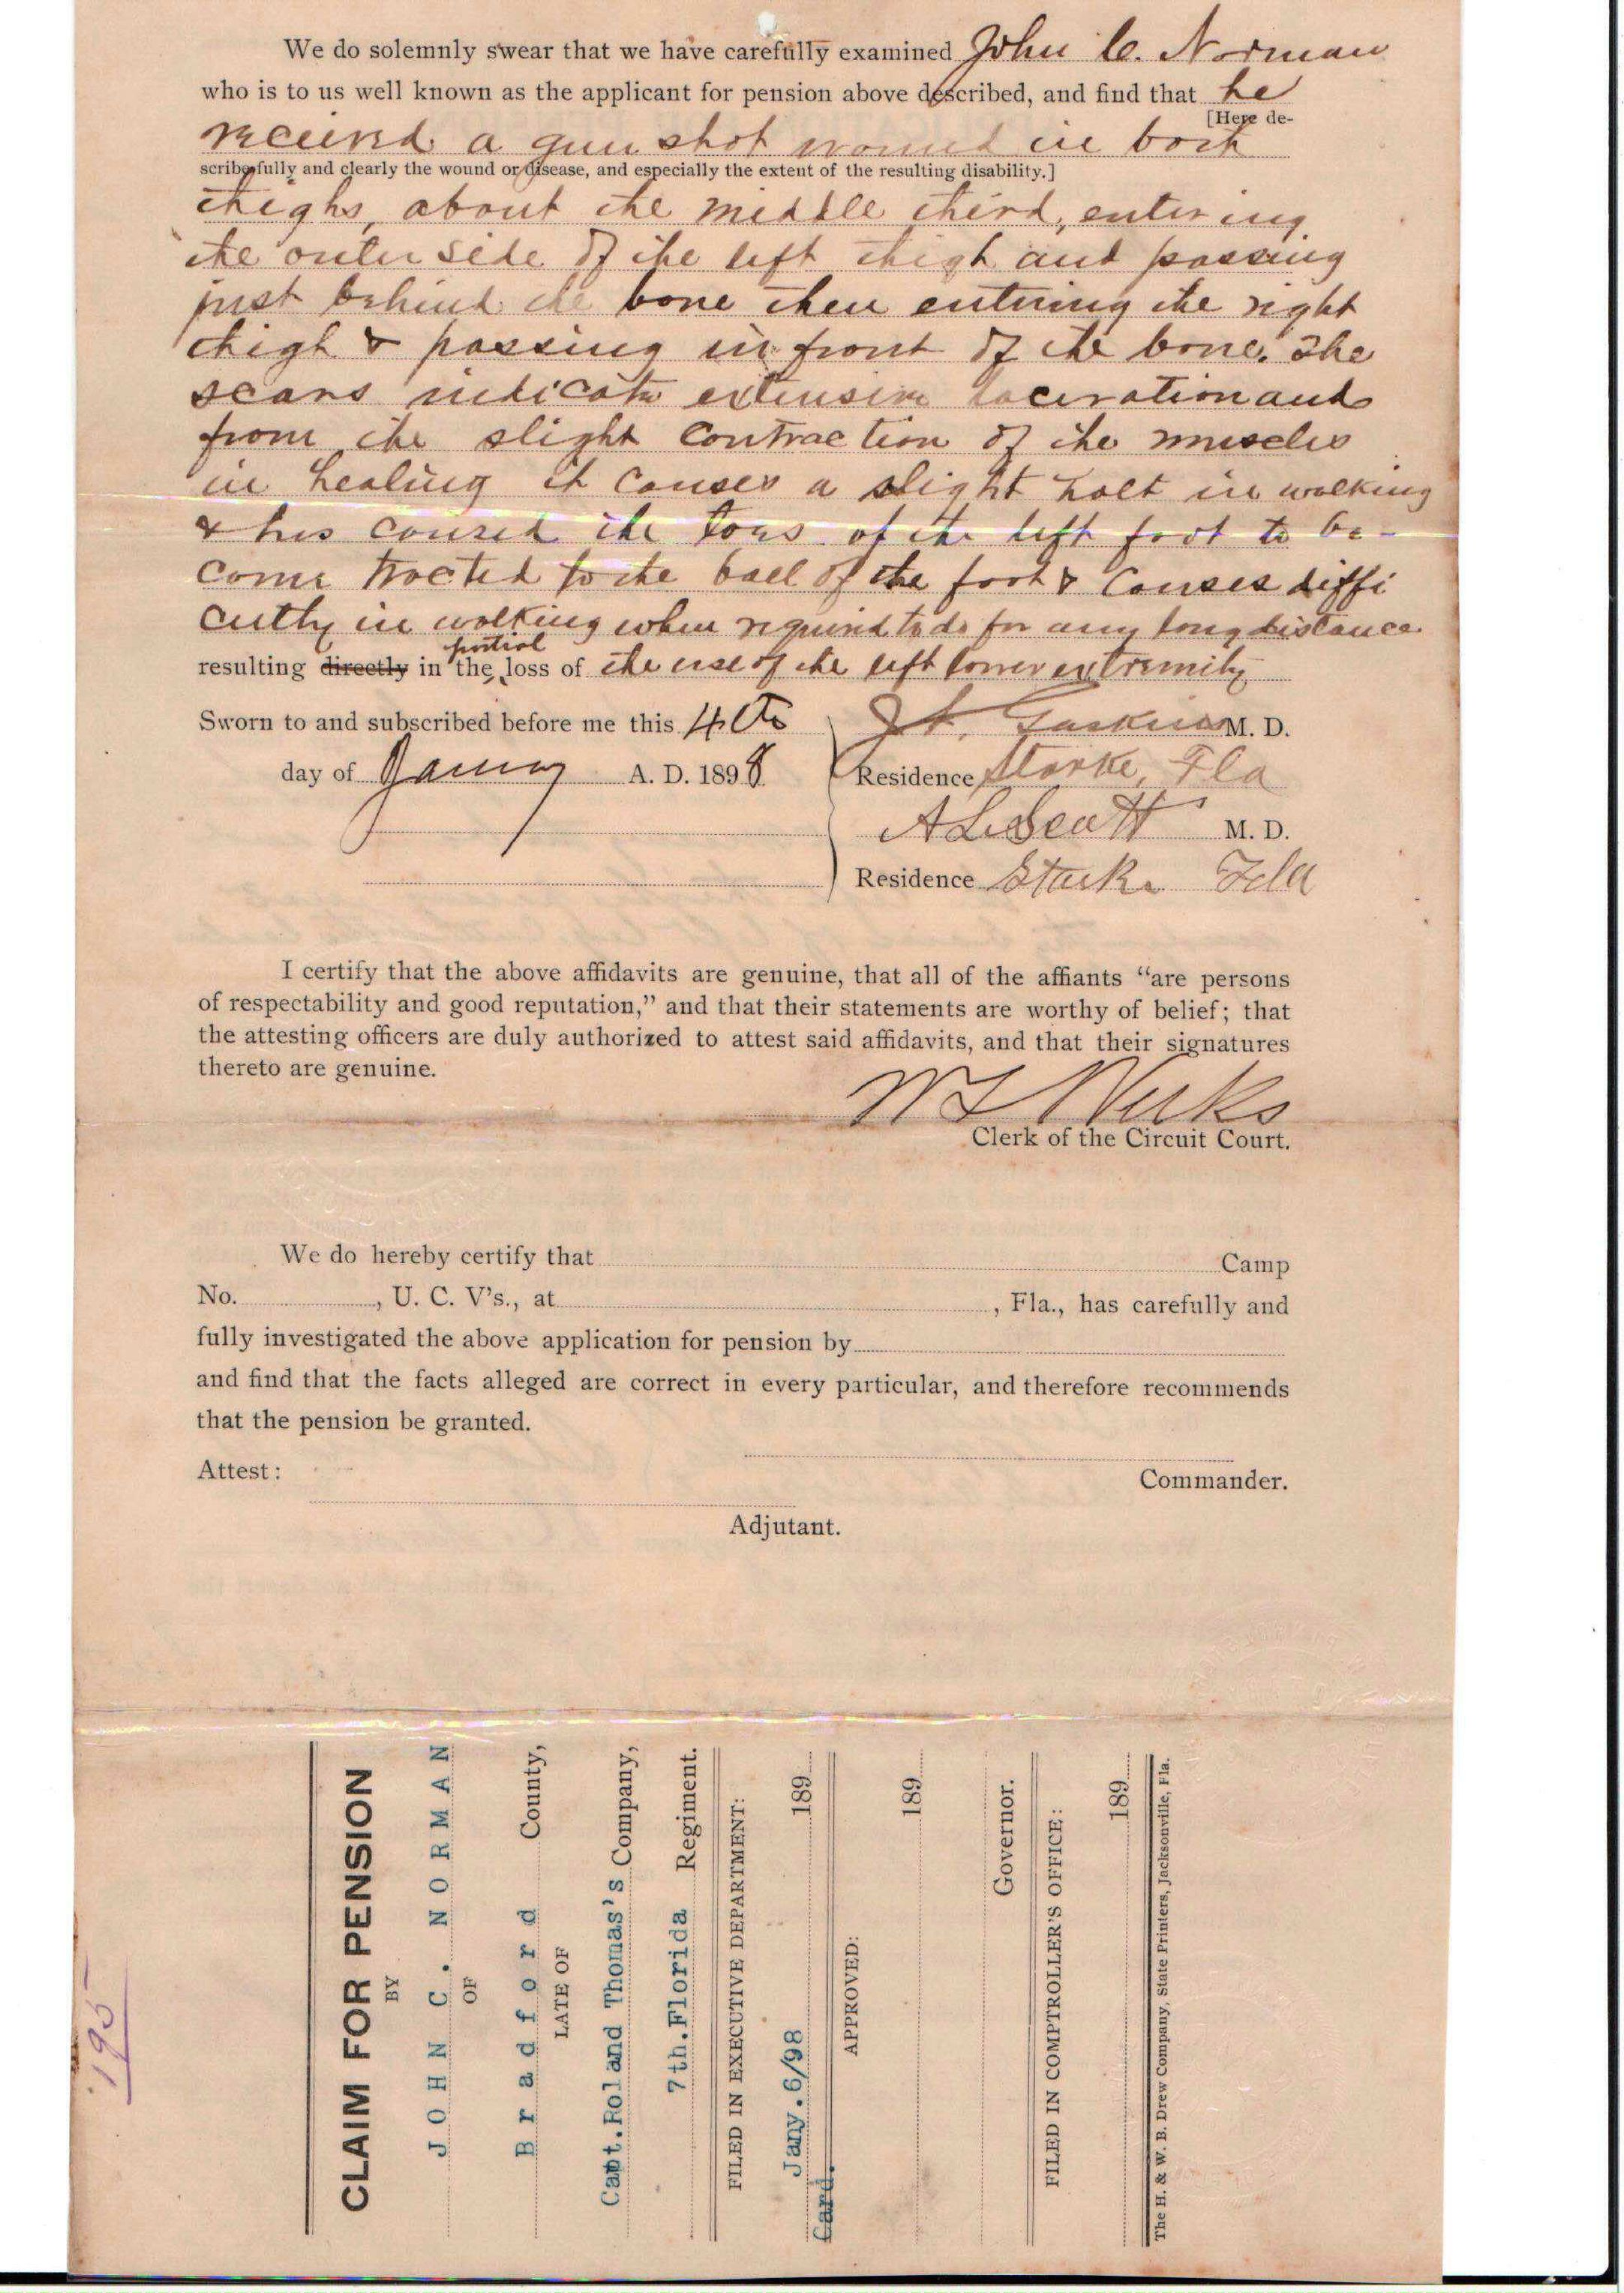 We do solemnly swear that we have carefully examined John C. Norman
who is to us well known as the applicant for pension above described, and find that he
[Here de-
received a gun shot wound in both
scribe fully and clearly the wound or disease, and especially the extent of the resulting disability.]
thighs, about the middle third, entering
the outer side of the left thigh and passing
just behind the bone then entering the right
thigh & passing in front of the bone. The
scars indicate extensive laceration and
from the slight contraction of the muscles
in healing it causes a slight halt in walking
& has caused the toes of the left foot to be-
come tracted to the ball of the foot & causes diffi
culty in walking when required to do for any long distance
partial
resulting directly in the loss of the use of the left lower extremity
Sworn to and subscribed before me this 4th
Gaskins M. D.
day of Jany A. D. 1898
Residence Starke, Fla
A L Scott M. D.
Residence Starke Fla
I certify that the above affidavits are genuine, that all of the affiants "are persons
of respectability and good reputation," and that their statements are worthy of belief; that
the attesting officers are duly authorized to attest said affidavits, and that their signatures
thereto are genuine.
Clerk of the Circuit Court.
We do hereby certify that Camp
No. , U. C. V's., at , Fla., has carefully and
fully investigated the above application for pension by
and find that the facts alleged are correct in every particular, and therefore recommends
that the pension be granted.
Attest:
Commander.
Adjutant.
195
CLAIM FOR PENSION
BY
JOHN C. NORMAN
OF
Bradford County,
LATE OF
Capt.Roland Thomas's Company,
7th.Florida Regiment.
FILED IN EXECUTIVE DEPARTMENT:
Jany.6/98 189
Card.
APPROVED:
189
Governor.
FILED IN COMPTROLLER'S OFFICE:
189
The H. & W. B. Drew Company, State Printers, Jacksonville, Fla.